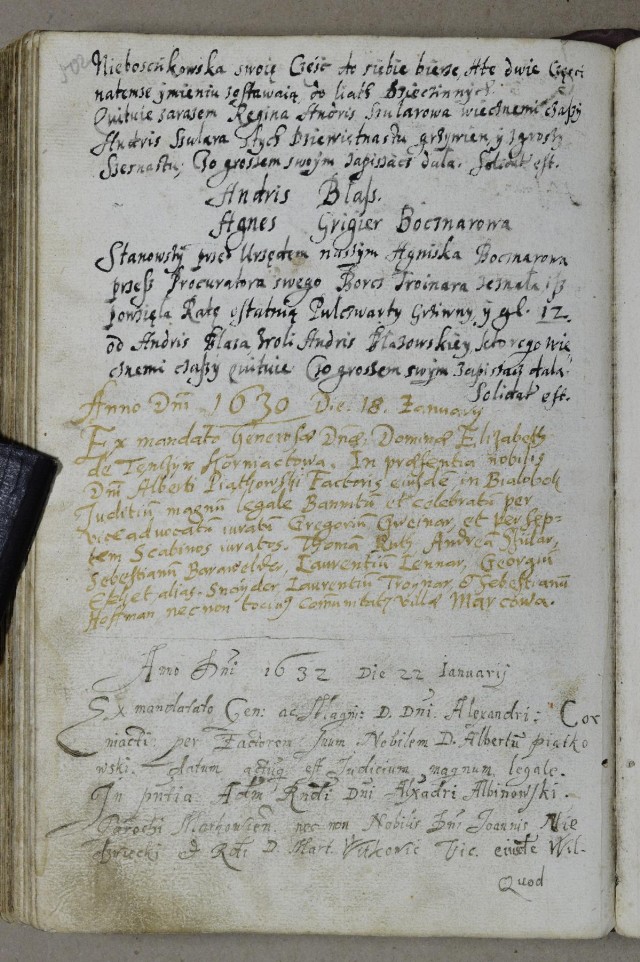 Nieboscńkowska swoię Cześć do siebie bierze, Ale dwie Części
natemse ymieniu zostawaią, do liath Dzieczinnÿch
Quituie zarasem Regina Andris Szularowa wiecznemi czasÿ
Andris Szulara Tÿch Dziewiętnastu grzÿwien, ÿ zgroszÿ
Szesnastu, Czo groszem swoÿm zapissacz dala. Solidat est.
Andris Blass.
Agnes Grigier Bocznarowa
Stanowszÿ przed Urzędem naszÿm Agniska Bocznarowa
przess Procuratora swego Borcs Troinara zeznała isz
powzięla Ratę ostatnią Pulczwarty Grziwnÿ, ÿ gl. 12.
od Andris Blasa zroli Andris Blazowskieÿ, ktorego wie
cznemi czasÿ quituie Czo groszem swÿm zapissacz dala
Solidat est.
Anno Dni 1630 Die 18. Ianuarÿ
Ex mandato Generosæ Dnæ: Dominæ Elizabeth
de Tenczyn Korniactowa. In præsentia nobilis
Dni Alberti Piatkowski Factoris eiusde in Bialoboki
Juditiũ magnũ legale Bannitũ et celebratũ per
viceadvocatũ iuratũ Gregoriũ Greinar, et per sep-
tem Scabinos iuratos. Thomã Ruth, Andreã Szular,
Sebestianũ Barawelder, Laurentiũ Lennar, Georgiũ
alias Snayder, Laurentiũ Troynar, et Sebestianũ
Hoffman necnon tociuq Comunitatz villæ Marcowa.
Anno Dni 1632 Die 22 Ianuarij
Ex mandatato Gen: ac Magni: D. Dni: Alexandri: Cor
niacti: per Factorem suum Nobilem D. Albertũ piatko
wski. datum actuq est Judicium magnum legale.
In pntia Adm Rndi Dni Alxadri Albinowski.
Parochi Markowien. nec non Nobilis Dni Joannis Nie
brzecki & Rdi D. Mart. Witkowic Vic. eiusde Wil-
Quod